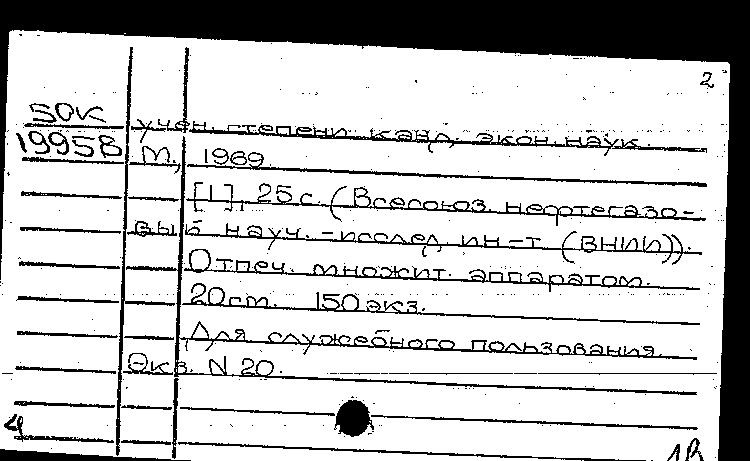 2
50К
учён. степени канд. экон. наук.
19958
М., 1969.
[1], 25 с. (Всесоюз. нефтегазо-
вый науч.-исслед. ин-т (ВНИИ)).
Отпеч. множит. аппаратом.
20 см. 150 экз.
Для служебного пользования.
Экз. N 20.